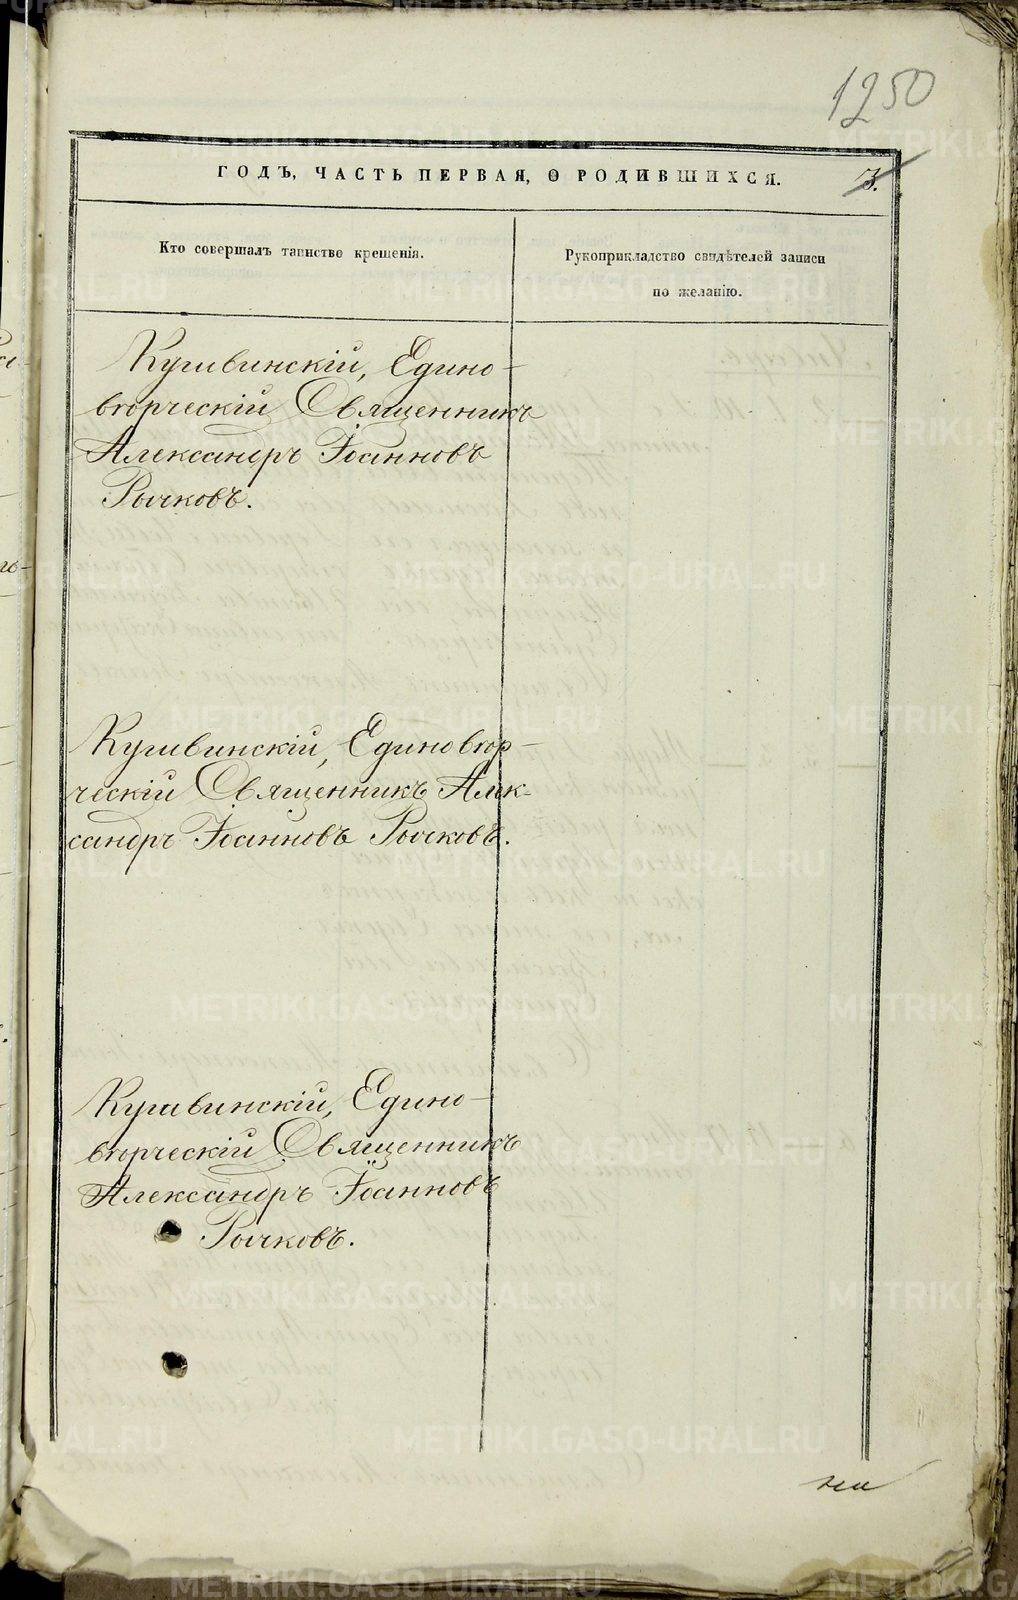 1250
ГОДЪ, ЧАСТЬ ПЕРВАЯ, О РОДИВШИХСЯ.
3.
Кто совершалъ таинство крещенія.
Рукоприкладство свидѣтелей записи
по желанію.
Кушвинскій, Едино-
вѣрческій Священникъ
Александръ Іоанновъ
Рычковъ.
Кушвинскій, Единовѣр-
ческій Священникъ Алек-
сандръ Іоанновъ Рычковъ.
Кушвинскій, Едино-
вѣрческій Священникъ
Александръ Іоанновъ
Рычковъ.
METRIKI.GASO-URAL.RU